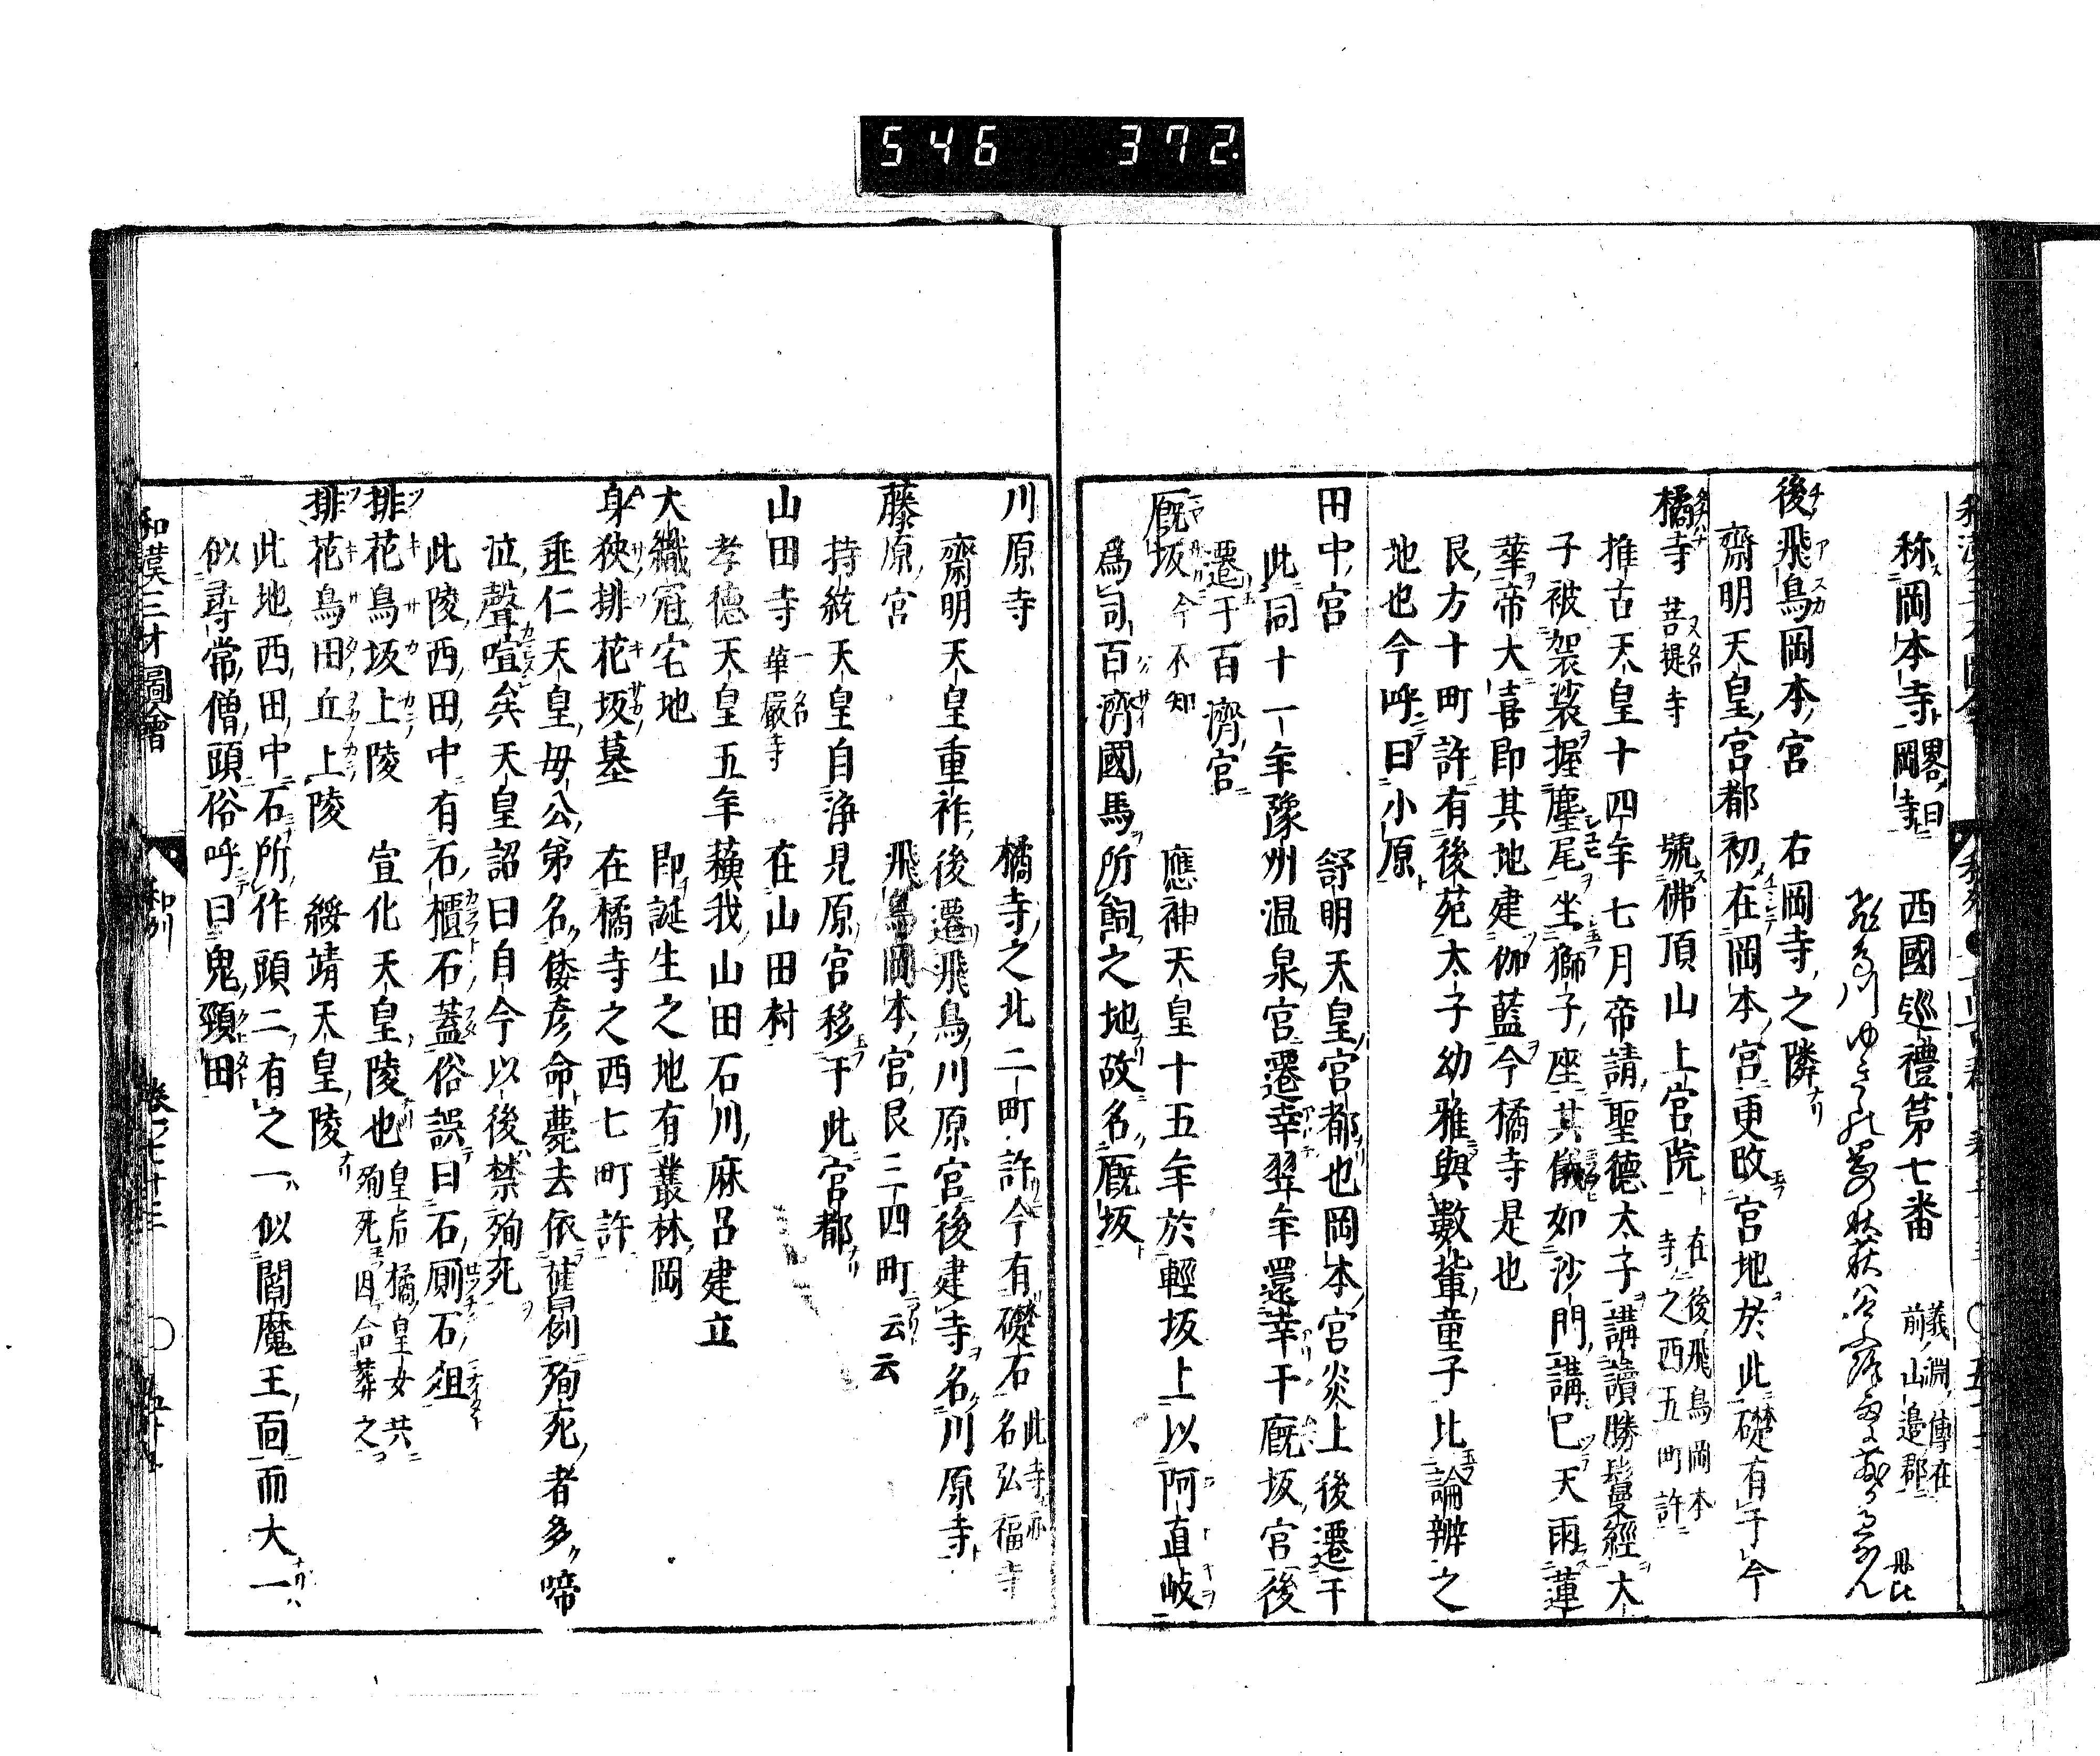 546 372.
称岡本寺畧曰岡寺 西國巡禮第七番 義淵傳在前山邉郡
後飛鳥岡本宮 右岡寺之隣
齋明天皇宮都初在岡本宮更改宮地於此礎有于今
橘寺 又名菩提寺 號佛頂山上宮院 在後飛鳥岡本寺之西五町許
推古天皇十四年七月帝請聖德太子講讀勝鬘經太
子被袈裟握麈尾坐獅子座其儀如沙門講已天雨蓮
華帝大喜即其地建伽藍今橘寺是也
艮方十町許有後苑太子幼雅與數輩童子比論辨之
地也今呼曰小原
田中宮 舒明天皇宮都也岡本宮炎上後遷于
此同十一年豫州温泉宮遷幸翌年還幸于廐坂宮後
遷于百濟宮
廐坂 今不知 應神天皇十五年於輕坂上以阿直岐
爲司百濟國馬所飼之地故名廐坂
川原寺 橘寺之北二町許今有礎石 此寺亦名弘福寺
齋明天皇重祚後遷飛鳥川原宮後建寺名川原寺
藤原宮 飛鳥岡本宮艮三四町云云
持統天皇自浄見原宮移于此宮都
山田寺 一名華嚴寺 在山田村
孝德天皇五年蘓我山田石川麻呂建立
大織冠宅地 即誕生之地有叢林岡
身狹排花坂墓 在橘寺之西七町許
垂仁天皇母公弟名倭彦命薨去依舊例殉死者多啼
泣聲喧矣天皇詔曰自今以後禁殉死
此陵西田中有石櫃石蓋俗誤曰石厠石爼
排花鳥坂上陵 宣化天皇陵也 皇后橘皇女共殉死因合葬之
排花鳥田丘上陵 綏靖天皇陵
此地西田中石所作頭二有之一似閻魔王面而大一
似尋常僧頭俗呼曰鬼頸田
和漢三才圖會 和州 卷七十三